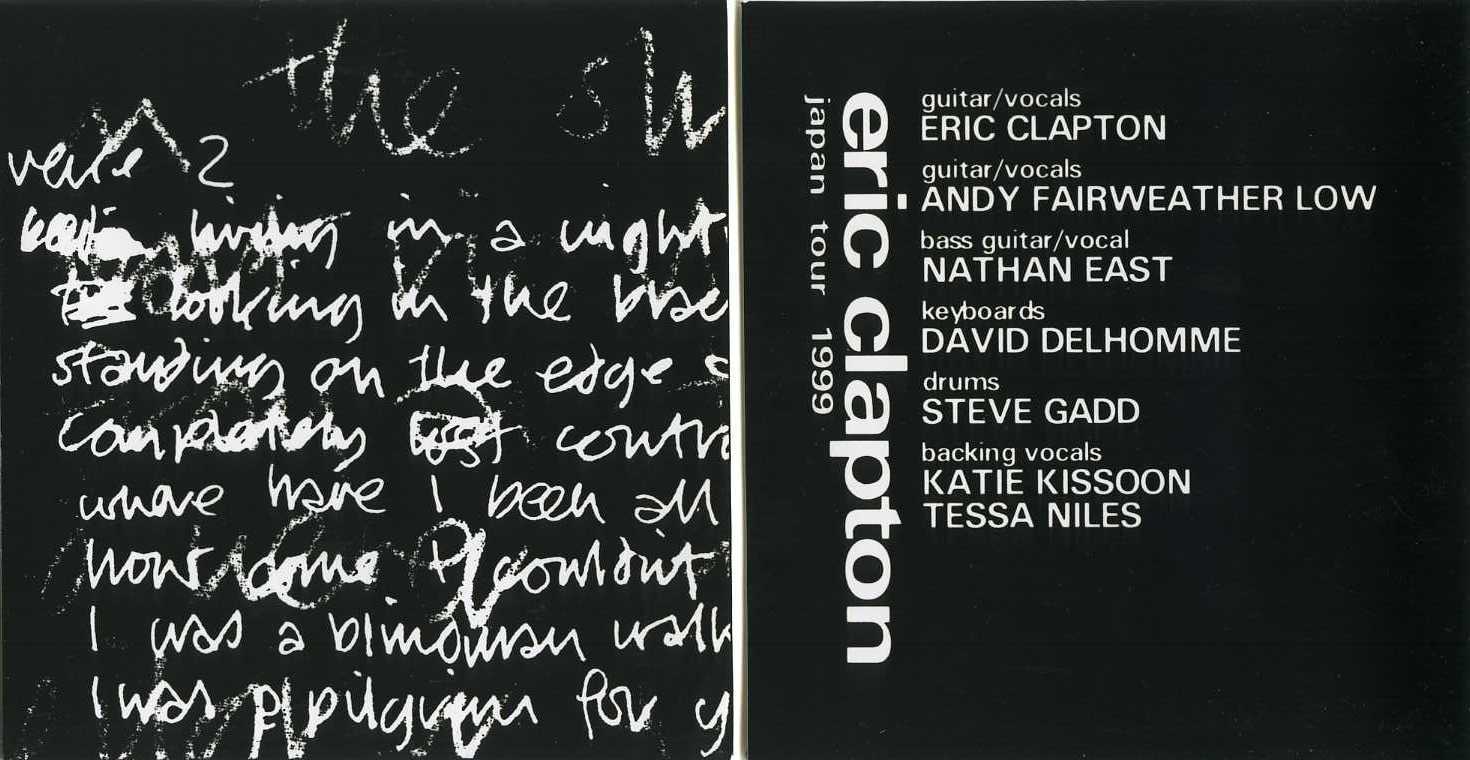 the sh
verse 2
living in a night
looking in the blac
standing on the edge
completely lost contro
where have I been all
how come I couldn't
I was a blindman walk
I was a pilgrim for y
eric clapton
japan tour 1999
guitar/vocals
ERIC CLAPTON
guitar/vocals
ANDY FAIRWEATHER LOW
bass guitar/vocal
NATHAN EAST
keyboards
DAVID DELHOMME
drums
STEVE GADD
backing vocals
KATIE KISSOON
TESSA NILES